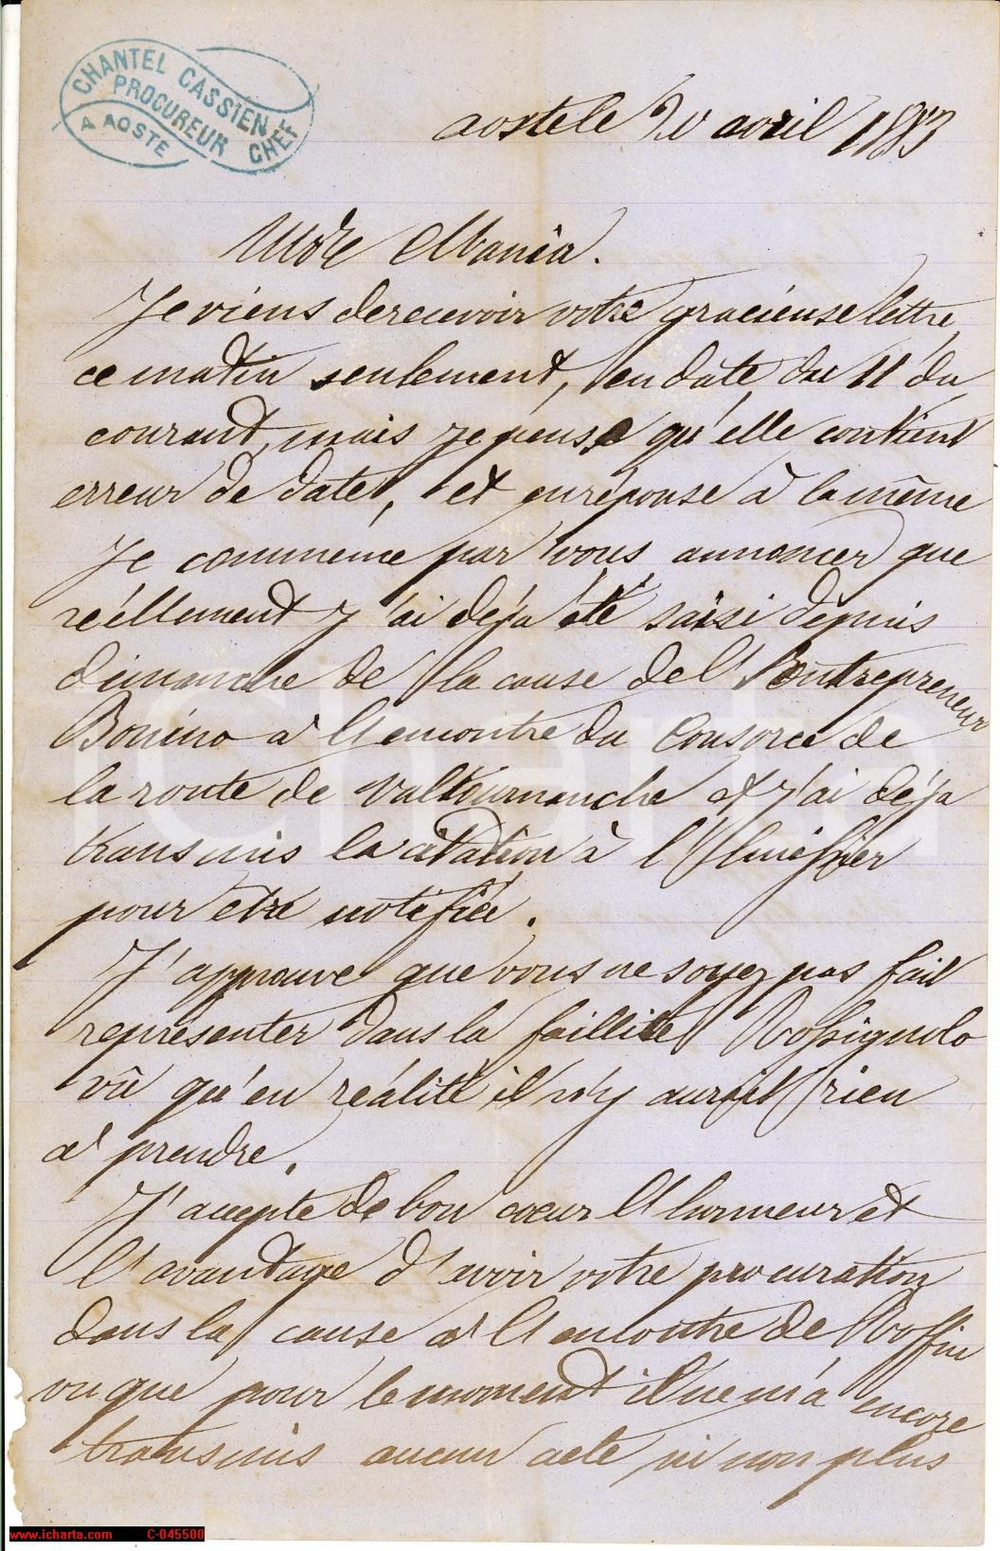 CHANTEL CASSIEN
PROCUREUR CHEF
A AOSTE
aoste le 20 avril 1883
Je viens de recevoir votre gracieuse lettre
ce matin seulement, en date du 11 du
courant, mais je pense qu'elle contient
erreur de date, et en réponse à la même
Je commence par vous annoncer que
réellement j'ai déja été saisi depuis
dimanche de la cause de l'Entrepreneur
Bonino a l'encontre du Consorce de
la route de Valtournanche et j'ai déja
transmis la citation à l'Huissier
pour etre notifiée.
J'approuve que vous ne soyez pas fait
représenter dans la faillite Rossignolo
vû qu'en réalité il n'y aurait rien
a prendre.
J'accepte de bon coeur l'honneur et
l'avantage d'avoir votre procuration
dans la cause a l'encontre de
vu que pour le moment il ne m'a encore
transmis aucun acte ni non plus
iCharta
www.icharta.com C-045500